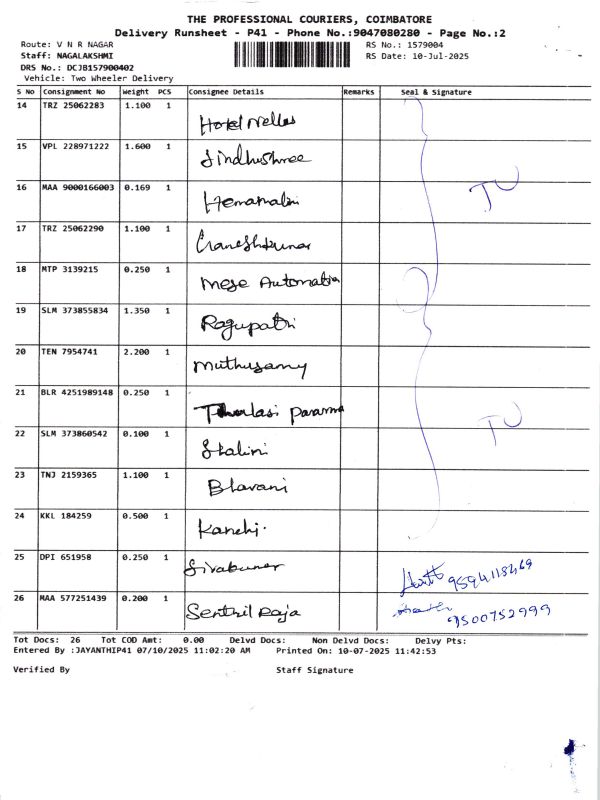 THE PROFESSIONAL COURIERS, COIMBATORE
Delivery Runsheet - P41 - Phone No.:9047080280 - Page No.:2
Route: V N R NAGAR RS No.: 1579004
Staff: NAGALAKSHMI RS Date: 10-Jul-2025
DRS No.: DCJB157900402
Vehicle: Two Wheeler Delivery
S No Consignment No Weight PCS Consignee Details Remarks Seal & Signature
14 TRZ 25062283 1.100 1 Hotel Nellas
15 VPL 228971222 1.600 1 Sindhushree
16 MAA 9000166003 0.169 1 Hemamalini
17 TRZ 25062290 1.100 1 Ganeshkumar
18 MTP 3139215 0.250 1 Mese Automation
19 SLM 373855834 1.350 1 Ragupathi
20 TEN 7954741 2.200 1 Muthusamy
21 BLR 4251989148 0.250 1 Thulasi
22 SLM 373860542 0.100 1 Shalini
23 TNJ 2159365 1.100 1 Bhavani
24 KKL 184259 0.500 1 Kanchi.
25 DPI 651958 0.250 1 Sivakumar 9594118469
26 MAA 577251439 0.200 1 Senthil Raja 9500752999
Tot Docs: 26 Tot COD Amt: 0.00 Delvd Docs: Non Delvd Docs: Delvy Pts:
Entered By :JAYANTHIP41 07/10/2025 11:02:20 AM Printed On: 10-07-2025 11:42:53
Verified By Staff Signature